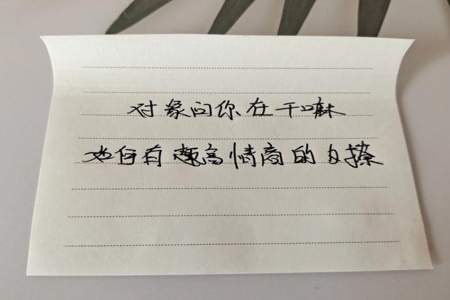 对象问你在干嘛
如何有趣高情商的撩